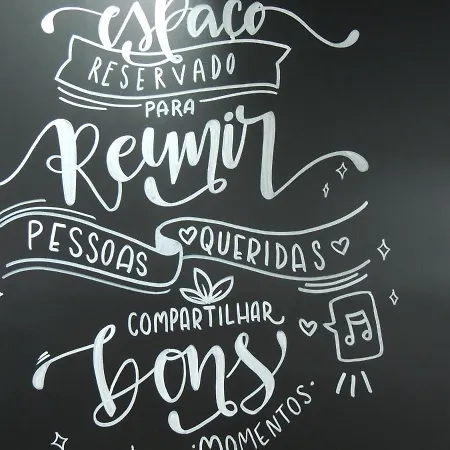 espaço
RESERVADO
PARA
Reunir
PESSOAS QUERIDAS
COMPARTILHAR
bons
MOMENTOS